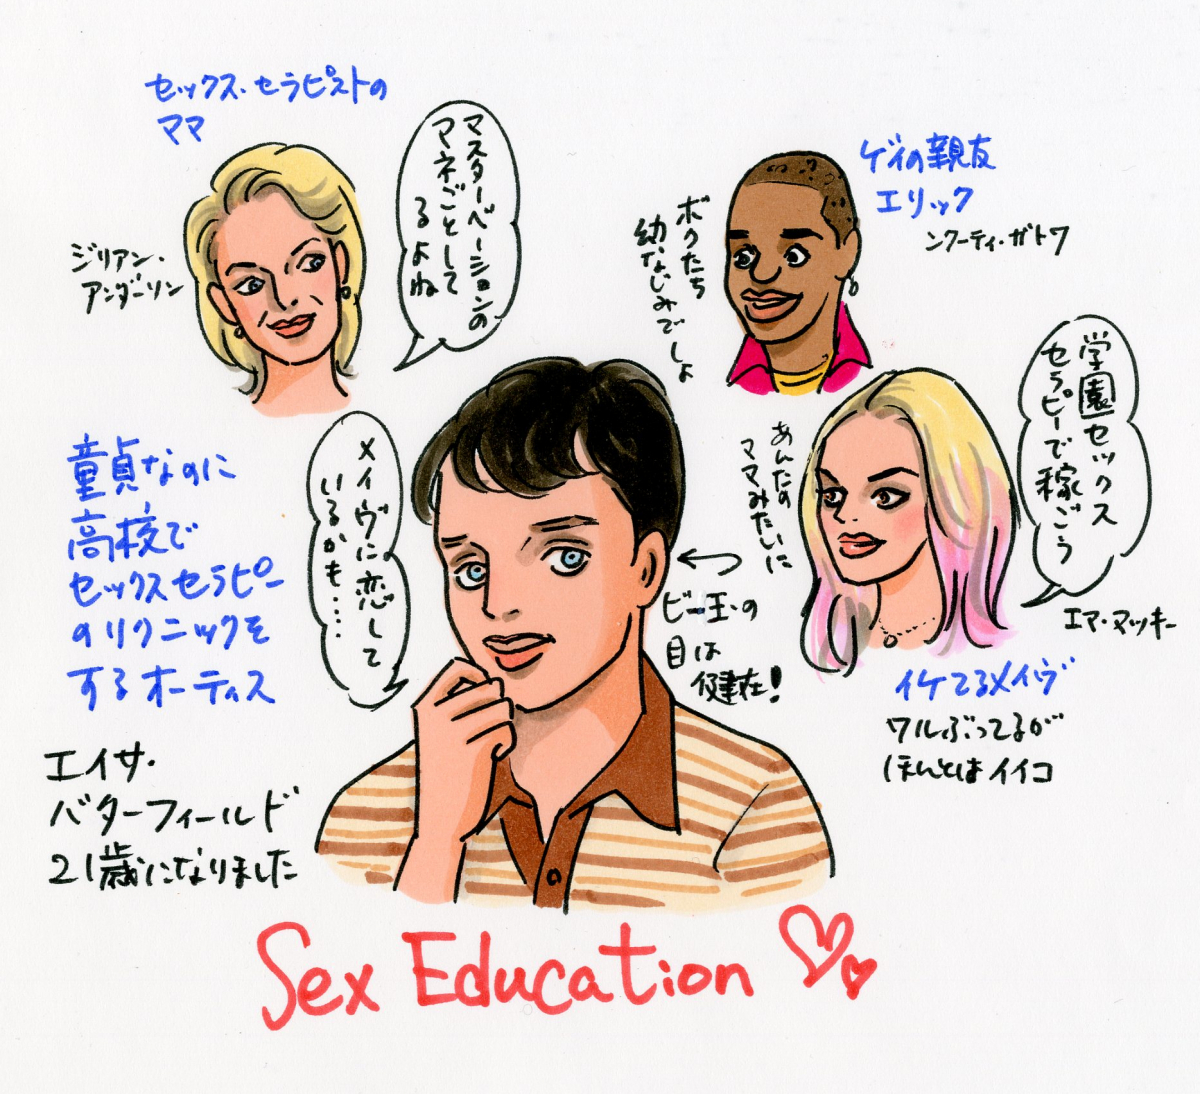 セックス・セラピストの
ママ
ジリアン・
アンダーソン
マスターベーションの
マネごとして
るよね
ボクたち
幼なじみでしょ
ゲイの親友
エリック
ンクーティ・ガトワ
学園セックス
セラピーで稼ごう
あんたの
ママみたいに
エマ・マッキー
イケてるメイヴ
ワルぶってるが
ほんとはイイコ
メイヴに恋して
いるかも・・・・
ビー玉の
目は
健在!
童貞なのに
高校で
セックスセラピー
のリクニックを
するオーティス
エイサ・
バターフィールド
21歳になりました
Sex Education